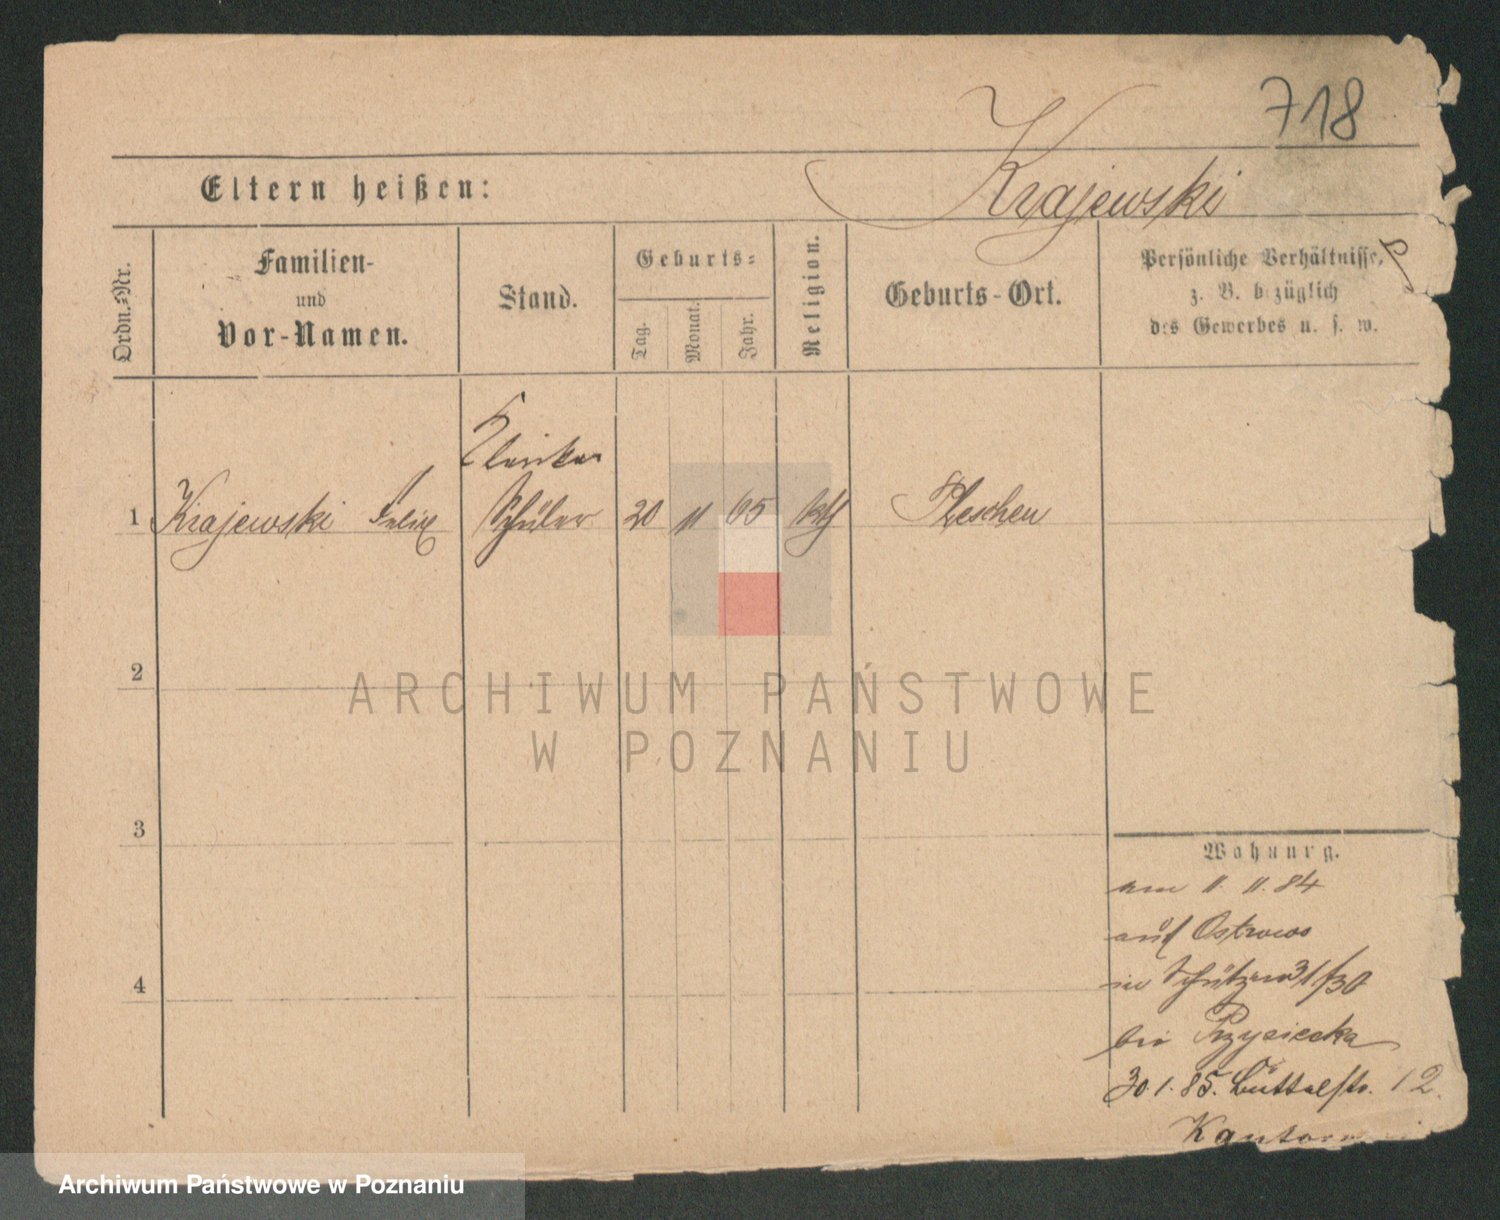 718
Eltern heißen: Krajewski
Ordn.-Nr.
Familien-
und
Vor-Namen.
Stand.
Geburts-
Tag.
Monat.
Jahr.
Religion.
Geburts-Ort.
Persönliche Verhältnisse,
z. B. bezüglich
des Gewerbes u. s. w.
1 Krajewski Felix Schüler 20 11 65 kth Pleschen
2
ARCHIWUM PAŃSTWOWE
W POZNANIU
3
4
Wohnung.
am 11. 11. 84
aus Ostrowo
in Schützenst 31/30
bei Przysiecka
30. 1. 85. Büttelstr. 12.
Archiwum Państwowe w Poznaniu